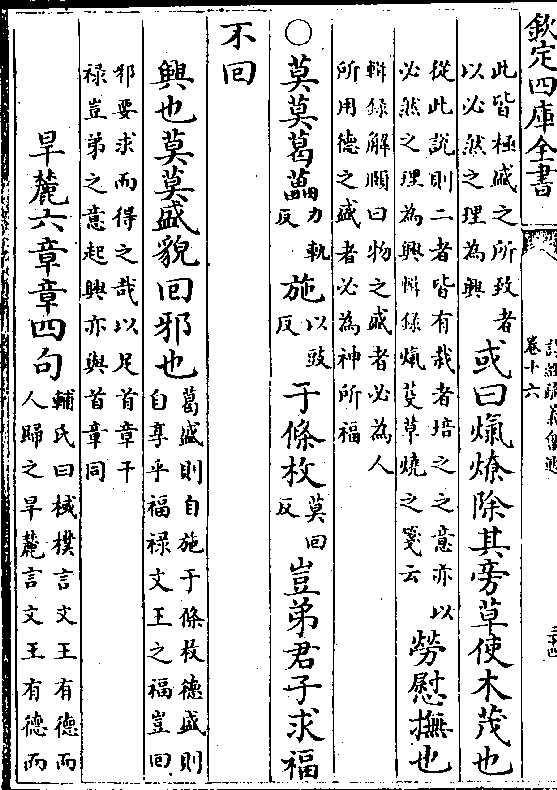 欽定四庫全書
詩經疏義會通
卷十六
此皆極盛之所致者
以必然之理為興
或曰熂燎除其旁草使木茂也
從此說則二者皆有栽者培之之意亦以
必然之理為興輯錄熂芟草燒之箋云
勞慰撫也
輯錄解頤曰物之盛者必為人
所用德之盛者必為神所福
○莫莫葛藟力軌反施以豉反于條枚莫回反豈弟君子求福
不回
興也莫莫盛貌回邪也
葛盛則自施于條枚德盛則
自享乎福禄文王之福豈回
邪要求而得之哉以足首章干
禄豈弟之意起興亦與首章同
旱麓六章章四句
輔氏曰棫樸言文王有德而
人歸之旱麓言文王有德而